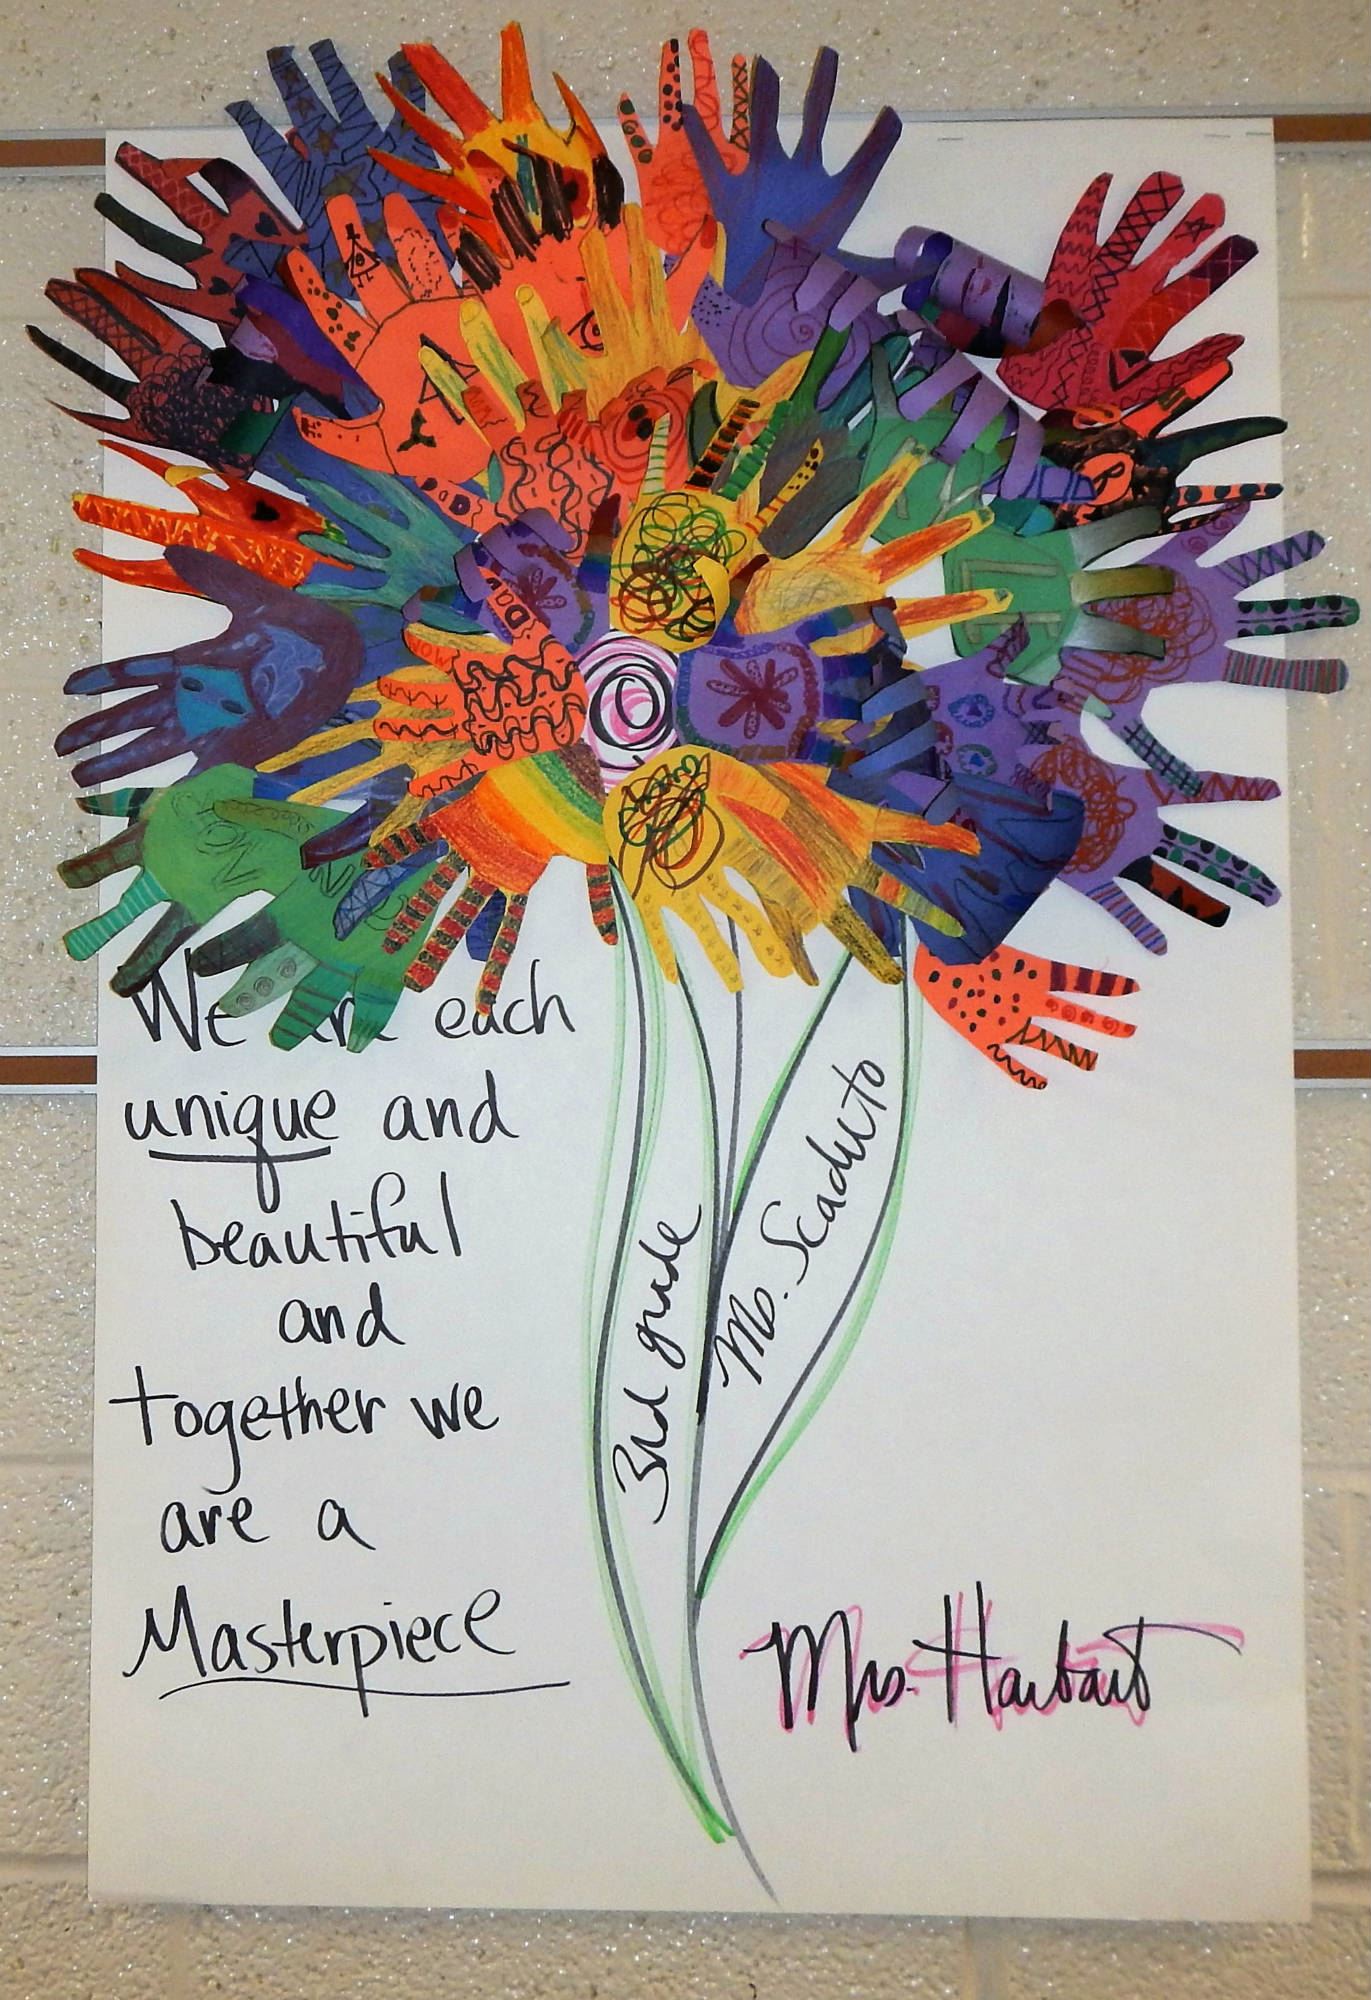 We are each
unique and
beautiful
and
together we
are a
Masterpiece
3rd grade
Ms. Scaduto
Mrs. Harbart